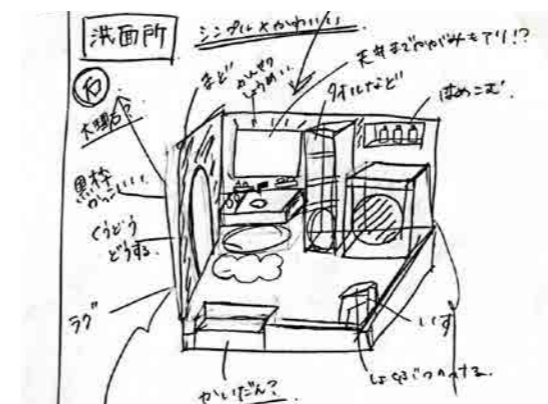 洗面所
シンプル×かわいい
石
大理石?
まど
かんせつ
しょうめい
天井までかがみもアリ!?
タオルなど
はめこむ.
黒枠
かっこいい.
くうどう
どうする.
ラグ
かいだん?
いす